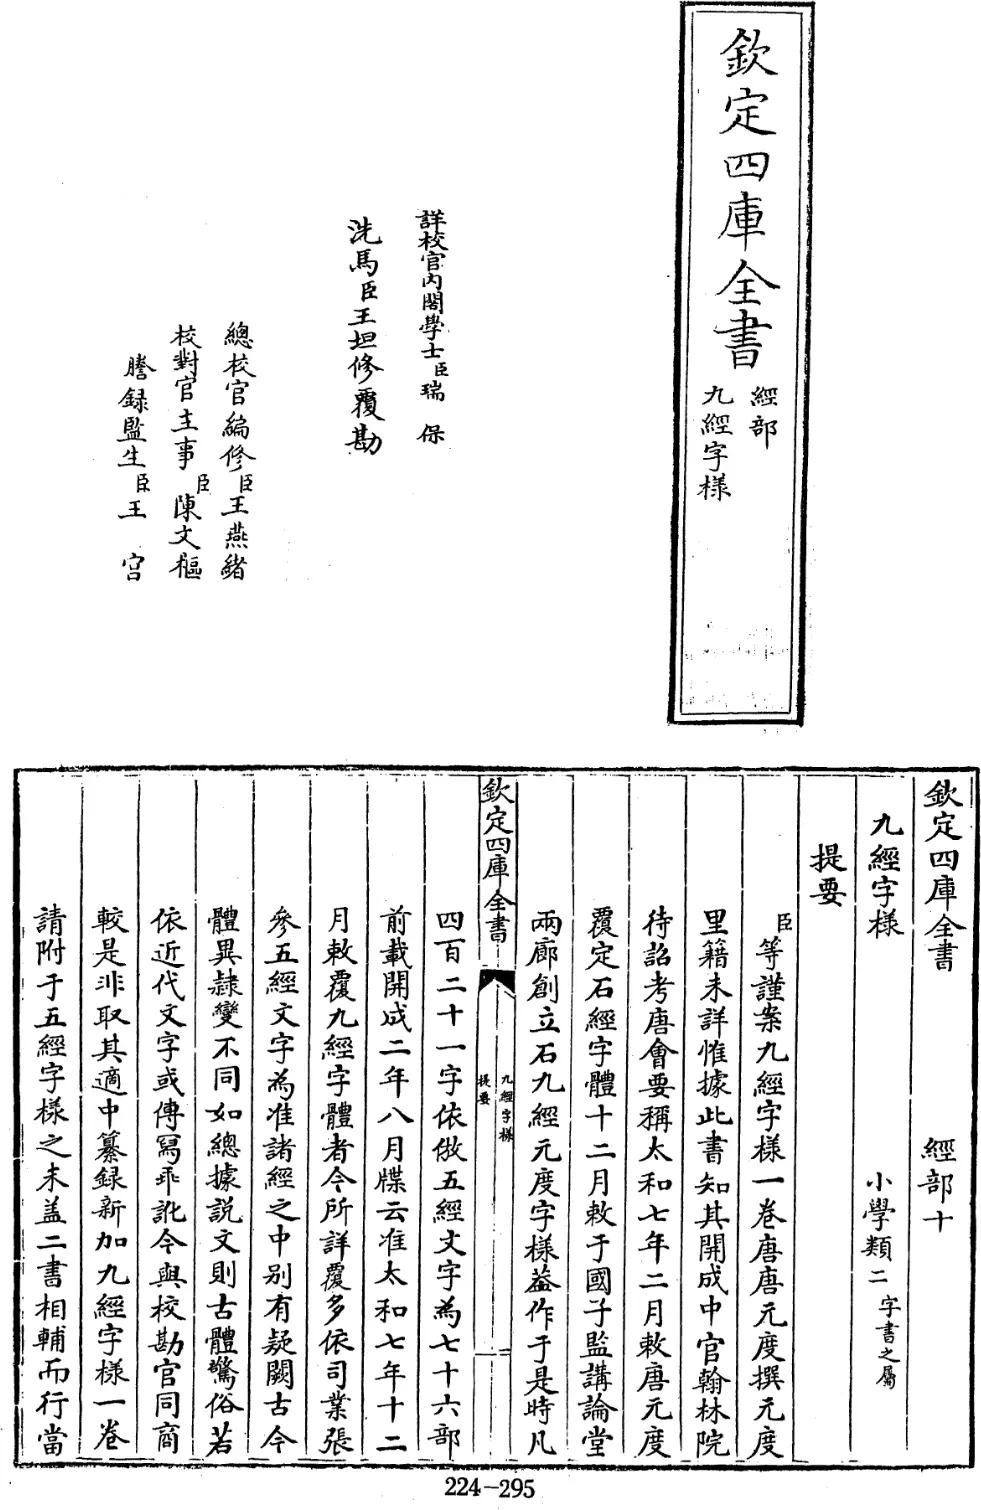 欽定四庫全書
經部
九經字樣
詳校官内閣學士臣瑞保
洗馬臣王坦修覆勘
總校官編修臣王燕緒
校對官主事臣陳文樞
謄録監生臣王宫
欽定四庫全書 經部十
九經字樣 小學類二字書之屬
提要
臣等謹案九經字樣一卷唐唐元度撰元度
里籍未詳惟據此書知其開成中官翰林院
待詔考唐會要稱太和七年二月敕唐元度
覆定石經字體十二月敕于國子監講論堂
兩廊創立石九經元度字樣葢作于是時凡
欽定四庫全書
九經字樣
提要
二
一
四百二十一字依倣五經文字為七十六部
前載開成二年八月牒云准太和七年十二
月敕覆九經字體者今所詳覆多依司業張
參五經文字為准諸經之中别有疑闕古今
體異隷變不同如總據説文則古體驚俗若
依近代文字或傳寫乖訛今與校勘官同商
較是非取其適中纂録新加九經字樣一卷
請附于五經字樣之末盖二書相輔而行當
224-295